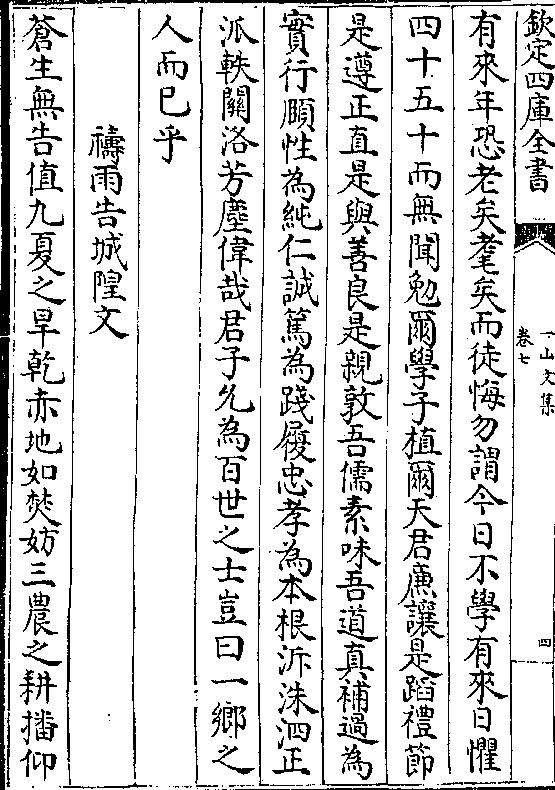 欽定四庫全書
一山文集
卷七
四
有來年恐老矣耄矣而徒悔勿謂今日不學有來日懼
四十五十而無聞勉爾學子植爾天君廉讓是蹈禮節
是遵正直是與善良是親敦吾儒素味吾道真補過為
實行頤性為純仁誠篤為踐履忠孝為本根泝洙泗正
派軼關洛芳塵偉哉君子允為百世之士豈曰一鄉之
人而已乎
禱雨告城隍文
蒼生無告值九夏之旱乾赤地如焚妨三農之耕播仰